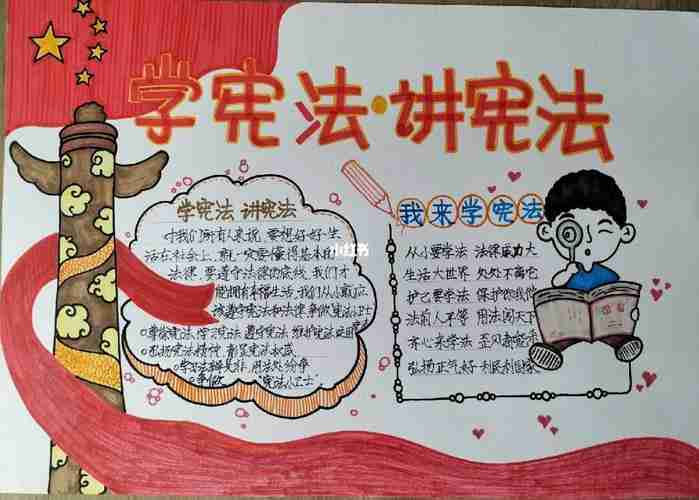 学宪法·讲宪法
学宪法 讲宪法
对我们所有人来说,要想好好生
活在社会上,就一定要懂得基本的
法律,要遵守法律的底线,我们才
能拥有幸福生活,我们从小就应
该遵守宪法和法律,争做"宪法小卫士"
尊崇宪法、学习宪法、遵守宪法、维护宪法
弘扬宪法精神,树立宪法权威
学习法辨是非,用法处纷争
争做"宪法小卫士"
小红书
我来学宪法
从小要学法 法律威力大
生活大世界 处处不离它
护己要学法 保护你我他
法前人平等 用法闯天下
齐心来学法 歪风
弘扬正气好 利民利国家